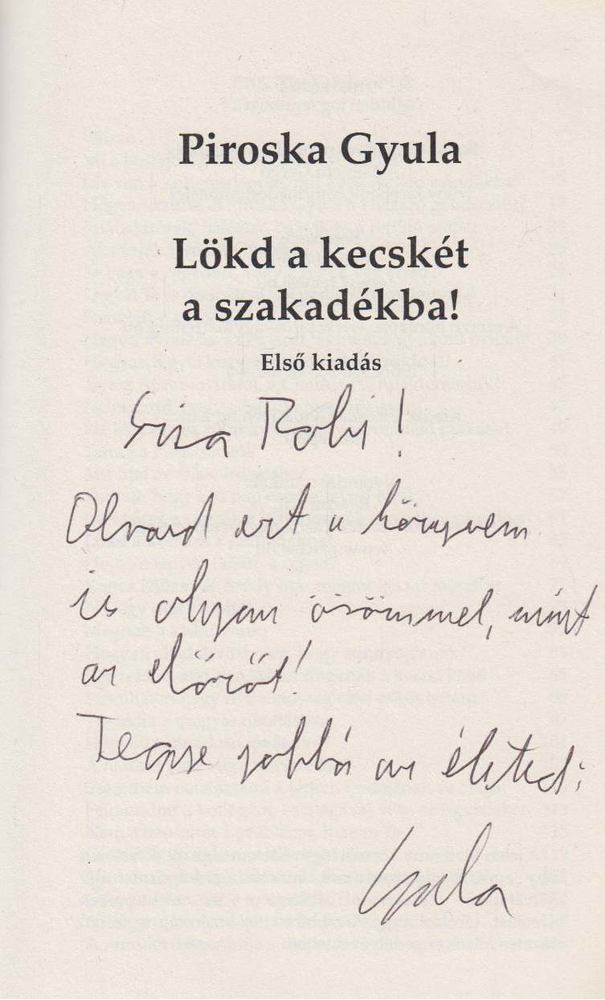 Piroska Gyula
Lökd a kecskét
a szakadékba!
Első kiadás
Szia Robi!
Olvasd ezt a könyvem
is olyan örömmel, mint
az előzőt!
Tegye jobbá az életed:
Gyula